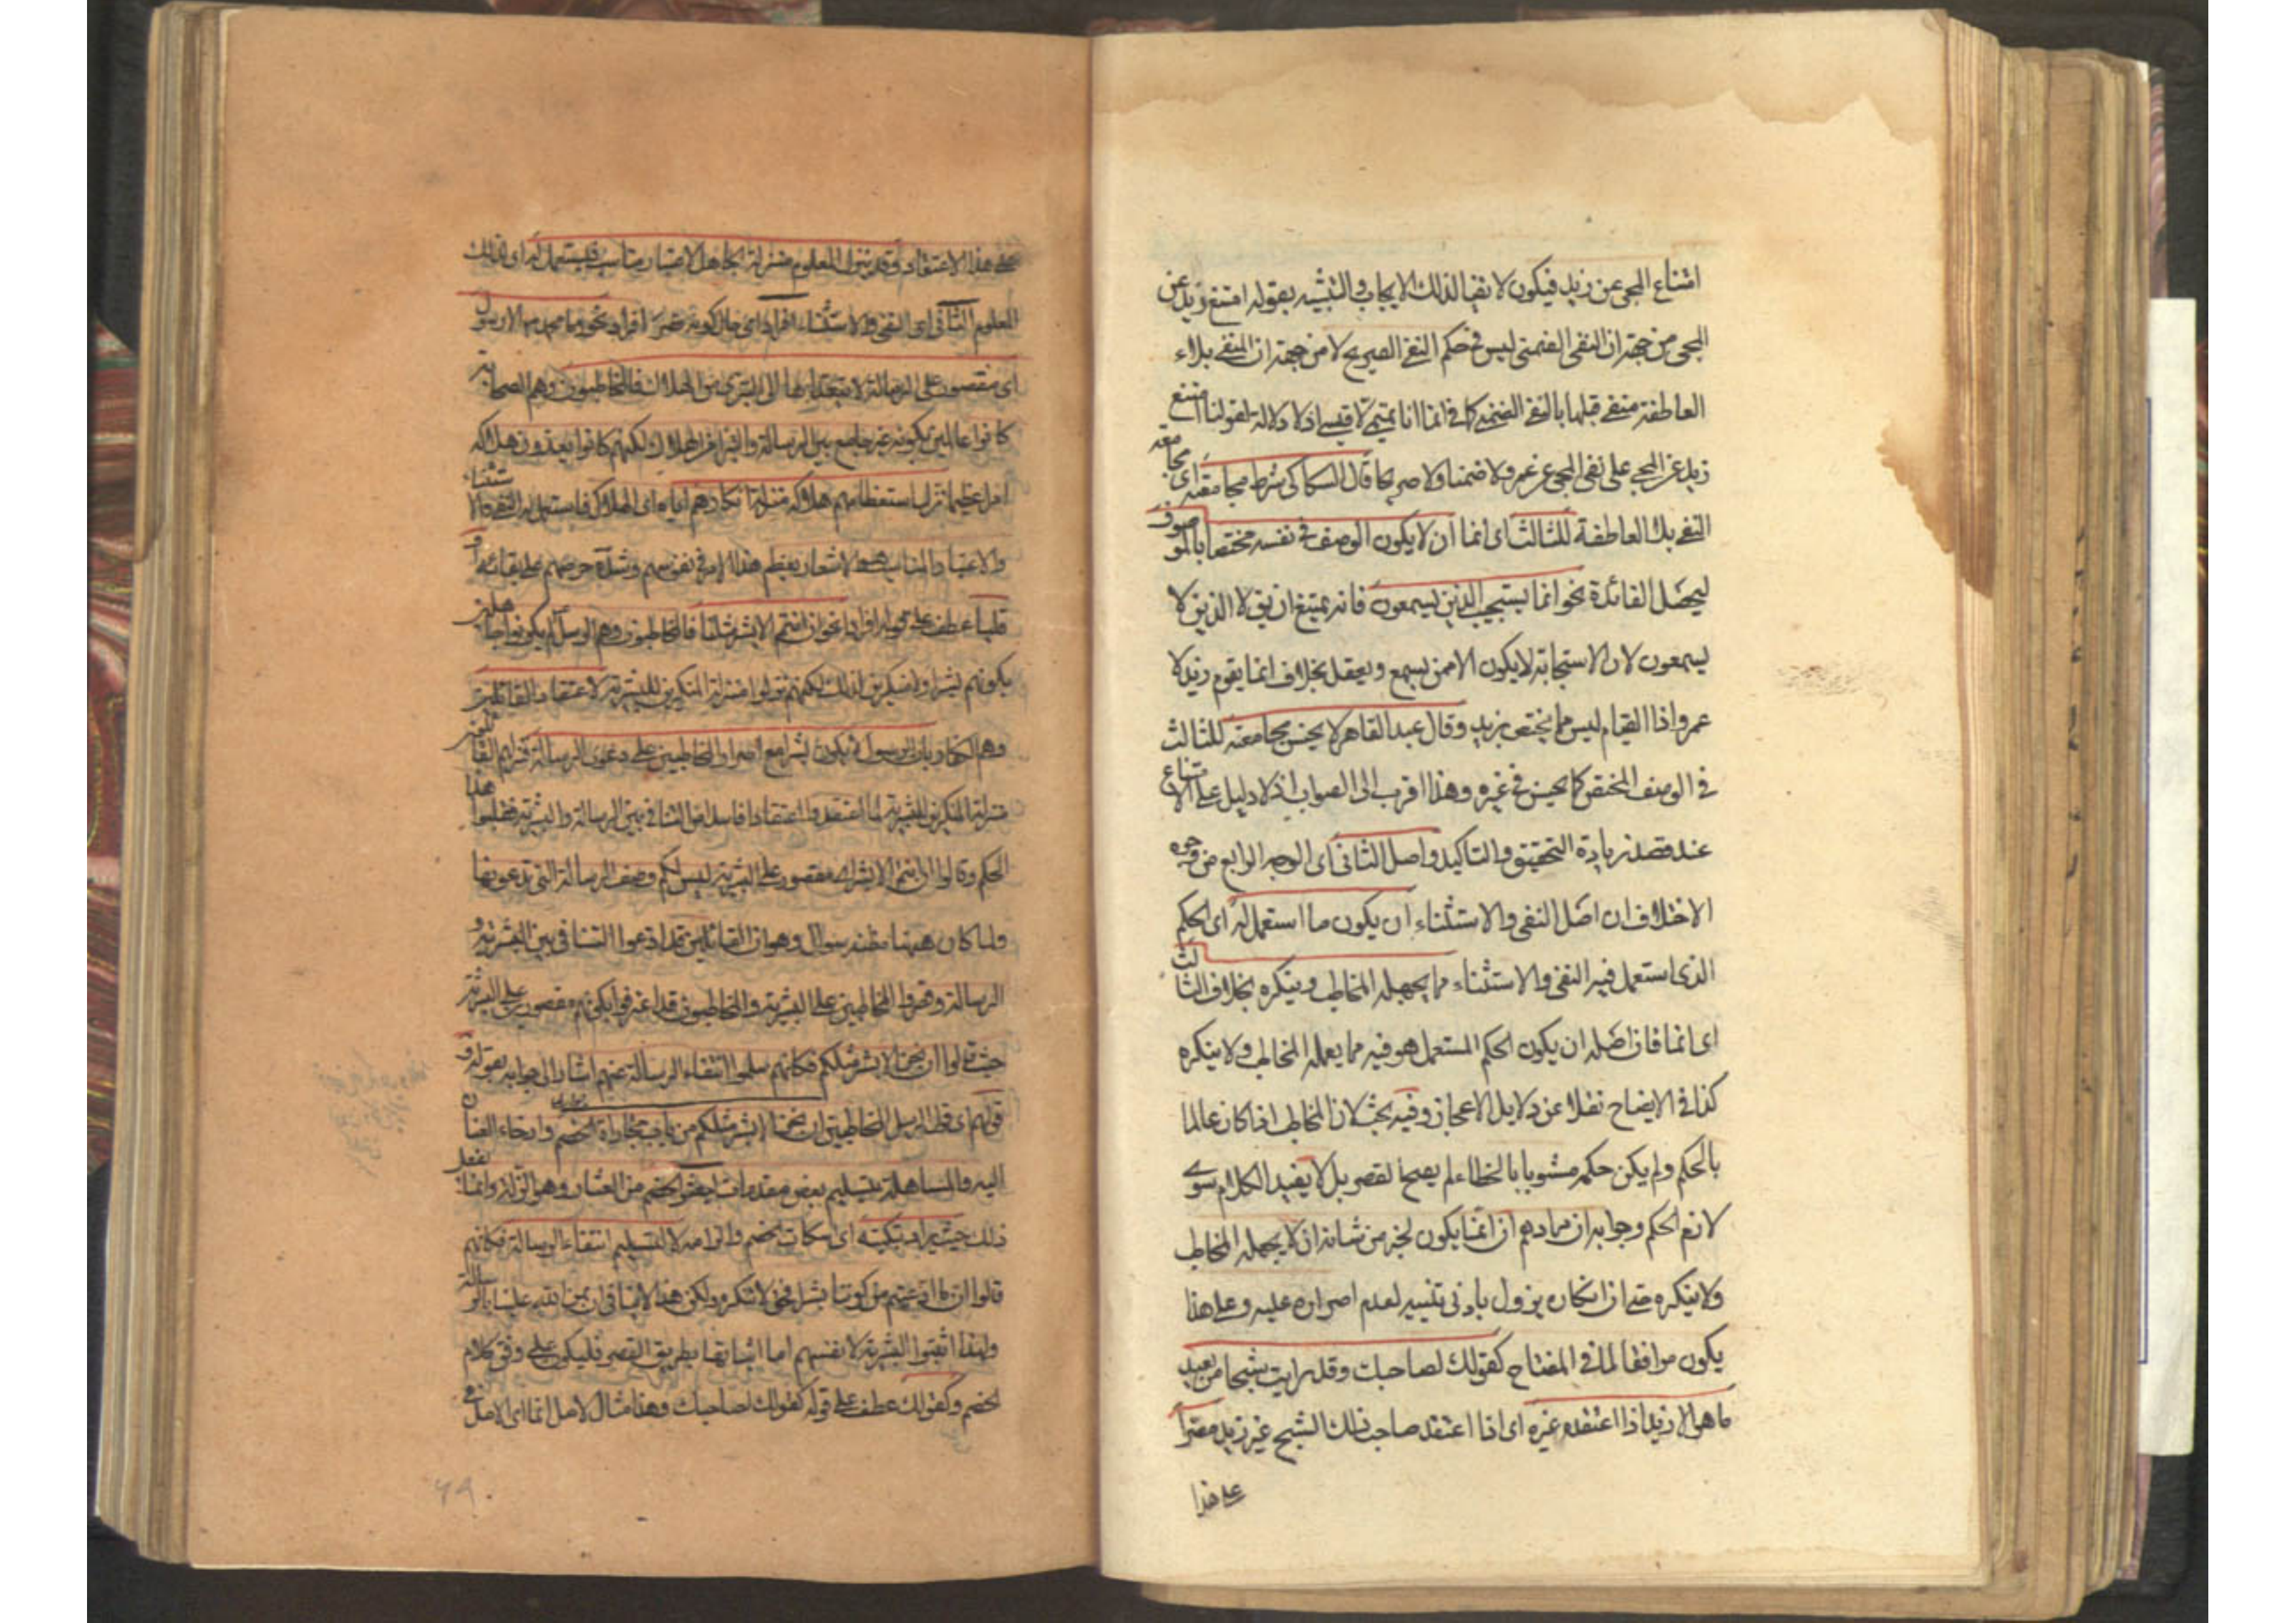 امتناع المجئ عن زيد فيكون لا نفيا لذلك الايجاب والتشبيه بقوله امتنع زيد عن
المجئ من جهة ان النفى الضمنى ليس فى حكم النفى الصريح لا من جهة ان المنفى بلاء
العاطفة منفى قبلها بالنفى الضمنى كما فى انما انا تميمى لا قيسى اذ لا دلالة لقولنا امتنع
زيد عن المجئ على نفى المجئ عن عمرو لا ضمنا ولا صريحا قال السكاكى شرط مجامعته اى مجامعة
النفى بلا العاطفة للثالث اى انما ان لا يكون الوصف فى نفسه مختصا بالموصوف
ليحصل الفائدة نحو انما يستجيب الذين يسمعون فانه يمتنع ان يق لا الذين لا
يسمعون لان الاستجابة لا يكون الا ممن يسمع ويعقل بخلاف انما يقوم زيد لا
عمرو اذا القيام ليس مما يختص بزيد وقال عبد القاهر لا يحسن مجامعته للثالث
فى الوصف المختص كما يحسن فى غيره وهذا اقرب الى الصواب اذ لا دليل على الامتناع
عند قصد زيادة التحقيق والتاكيد واصل الثانى اى الوجه الرابع من وجوه
الاختلاف ان اصل النفى والاستثناء ان يكون ما استعمل له اى الحكم
الذى استعمل فيه النفى والاستثناء مما يجهله المخاطب وينكره بخلاف الثالث
اى انما فان اصله ان يكون الحكم المستعمل هو فيه مما يعلمه المخاطب ولا ينكره
كذا فى الايضاح نقلا عن دلايل الاعجاز وفيه بحث لان المخاطب اذا كان عالما
بالحكم ولم يكن حكمه مشوبا بالخطاء لم يصح القصر بل لا يفيد الكلام سوى
لازم الحكم وجوابه ان مرادهم ان انما يكون لخبر من شانه ان لا يجهله المخاطب
ولا ينكره حتى ان انكاره يزول بادنى تنبيه لعدم اصراره عليه وعلى هذا
يكون موافقا لما فى المفتاح كقولك لصاحبك وقد رايت شبحا من بعيد
ما هو الا زيد اذا اعتقده غيره اى اذا اعتقد صاحبك ذلك الشبح غير زيد مصرا
على هذا
على هذا الاعتقاد وقد ينزل المعلوم منزلة المجهول لاعتبار مناسب فيستعمل له اى لذلك
المعلوم الثانى اى النفى والاستثناء افرادا اى حال كونه قصر افراد نحو وما محمد الا رسول
اى مقصور على الرسالة لا يتعداها الى التبرى من الهلاك فالمخاطبون وهم الصحابة
كانوا عالمين بكونه غير جامع بين الرسالة والتبرى من الهلاك لكنهم كانوا يعدون هلاكه
امرا عظيما نزل استعظامهم هلاكه منزلة انكارهم اياه اى الهلاك فاستعمل له النفى والاستثناء
والاعتبار المناسب هو الاشعار بعظم هذا الامر فى نفوسهم وشدة حرصهم على بقائه او
قلبا عطف على قوله افرادا نحو ان انتم الا بشر مثلنا فالمخاطبون وهم الرسل لم يكونوا جاهلين
بكونهم بشرا ولا منكرين لذلك لكنهم نزلوا منزلة المنكرين للبشرية لاعتقاد القائلين
وهم الكفار بان الرسول لا يكون بشرا مع اصرار المخاطبين على دعوى الرسالة فنزلهم القائلون
منزلة المنكرين للبشرية لما اعتقدوا اعتقادا فاسدا من التنافى بين الرسالة والبشرية فقلبوا هذا
الحكم وقالوا ان انتم الا بشر اى مقصورون على البشرية ليس لكم وصف الرسالة التى تدعونها
ولما كان ههنا مظنة سوال وهو ان القائلين قد ادعوا التنافى بين البشرية و
الرسالة وقصروا المخاطبين على البشرية والمخاطبون قد اعترفوا بكونهم مقصورين على البشرية
حيث قالوا ان نحن الا بشر مثلكم فكانهم سلموا انتفاء الرسالة عنهم اشار الى جوابه بقوله و
قولهم اى قول الرسل المخاطبين ان نحن الا بشر مثلكم من باب مجاراة الخصم وارخاء العنان
اليه والمساهلة بتسليم بعض مقدماته ليعثر الخصم من العثار وهو الزلة وانما يفعل
ذلك حيث يراد تبكيته اى اسكات الخصم والزامه لا لتسليم انتفاء الرسالة فكانهم
قالوا ان ما ادعيتم من كوننا بشرا فحق لا ننكره ولكن هذا لا ينافى ان يمن الله علينا بالرسالة
ولهذا اثبتوا البشرية لانفسهم اما اثباتها بطريق القصر فليكون على وفق كلام
الخصم وكقولك عطف على قوله كقولك لصاحبك وهذا مثال لاصل انما اى الاصل فى